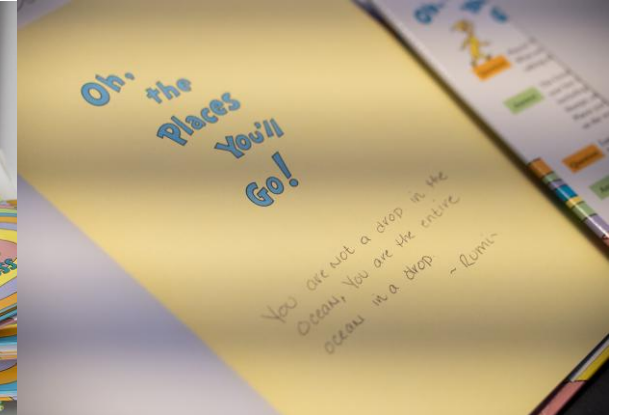 Oh,
the
Places
You'll
Go!
You are not a drop in the
ocean, You are the entire
ocean in a drop
~ Rumi~